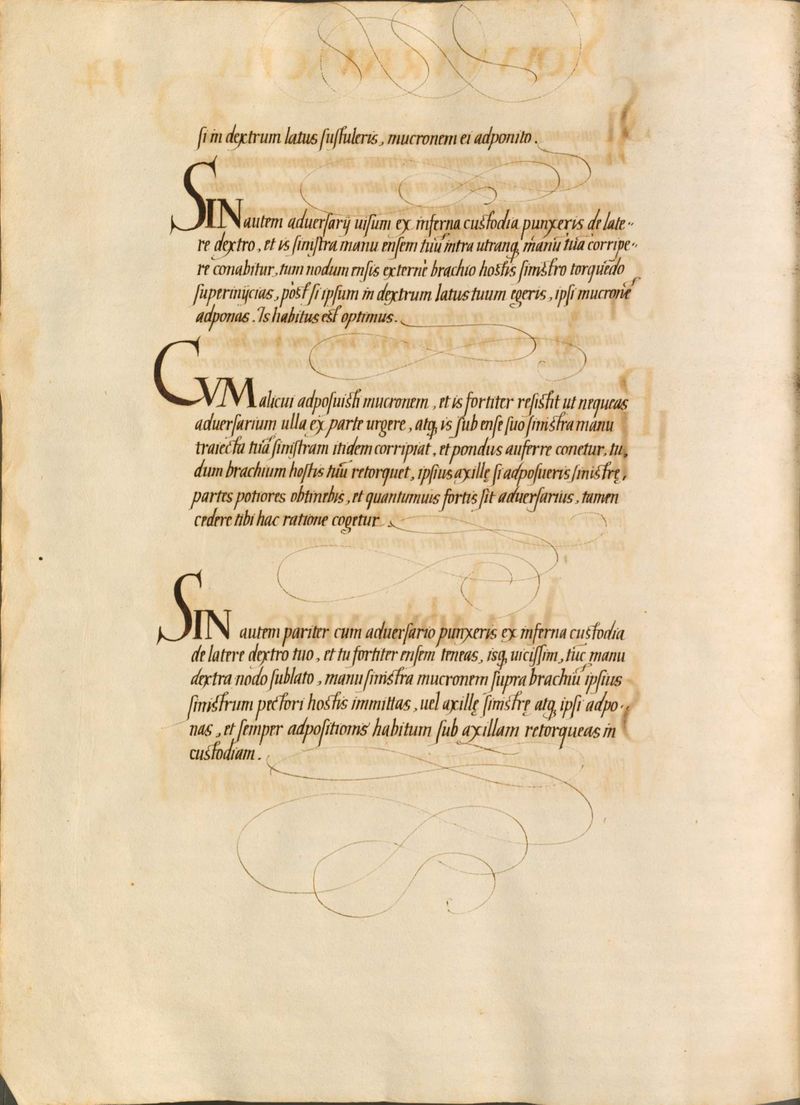 si in dextrum latus sustuleris, mucronem ei adponito.
SIN autem adversarij uisum ex inferna custodia punxeris de late-
re dextro, et is sinistra manu ensem tuũ intra utranq, manũ tuã corripe-
re conabitur, tum nodum ensis externè brachio hostis sinistro torquẽdo
superinijcias, post si ipsum in dextrum latus tuum egeris, ipsi mucronẽ
adponas. Is habitus est optimus.
CVM alicui adposuisti mucronem, et is fortiter resistit ut nequeas
aduersarium ulla ex parte urgere, atq, is sub ense suo sinistra manu
traiecta tuã sinistram itidem corripiat, et pondus auferre conetur, tu,
dum brachium hostis tuũ retorquet, ipsius axillę si adposueris sinistrę,
partes potiores obtinebis, et quantumuis fortis sit aduersarius, tamen
cedere tibi hac ratione cogetur.
SIN autem pariter cum aduersario punxeris ex inferna custodia
de latere dextro tuo, et tu fortiter ensem teneas, isq, uicissim, tũc manu
dextra nodo sublato, manu sinistra mucronem supra brachiũ ipsius
sinistrum pectori hostis immittas, uel axillę sinistrę atq, ipsi adpo-
nas, et semper adpositionis habitum sub axillam retorqueas in
custodiam.